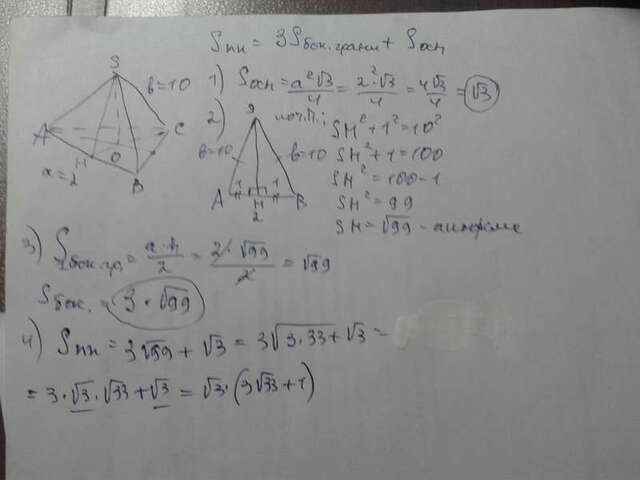 Sпп = 3Sбок.грани + Sосн
S
b=10
A
C
H
O
a=2
B
1) Sосн = a²√3/4 = 2²·√3/4 = 4√3/4 = √3
2)
S
b=10
b=10
A
1
1
H
B
2
SH² + 1² = 10²
SH² + 1 = 100
SH² = 100 - 1
SH² = 99
SH = √99 - апофема
3) Sбок.гр. = a·h/2 = 2·√99/2 = √99
Sбок. = 3·√99
4) Sпп = 3√99 + √3 = 3√3·33 + √3 =
= 3·√3·√33 + √3 = √3·(3√33 + 1)